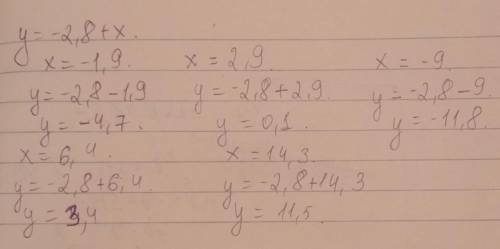 y = -2,8 + x.
x = -1,9. x = 2,9. x = -9.
y = -2,8 - 1,9 y = -2,8 + 2,9. y = -2,8 - 9.
y = -4,7. y = 0,1. y = -11,8.
x = 6,4. x = 14,3.
y = -2,8 + 6,4. y = -2,8 + 14,3
y = 3,4 y = 11,5.